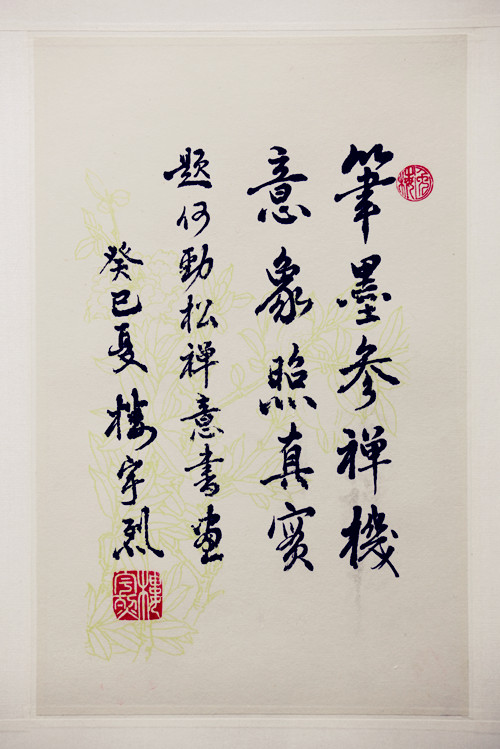 筆墨参禅機
意象照真實
题何勁松禅意書画
癸巳夏楼宇烈